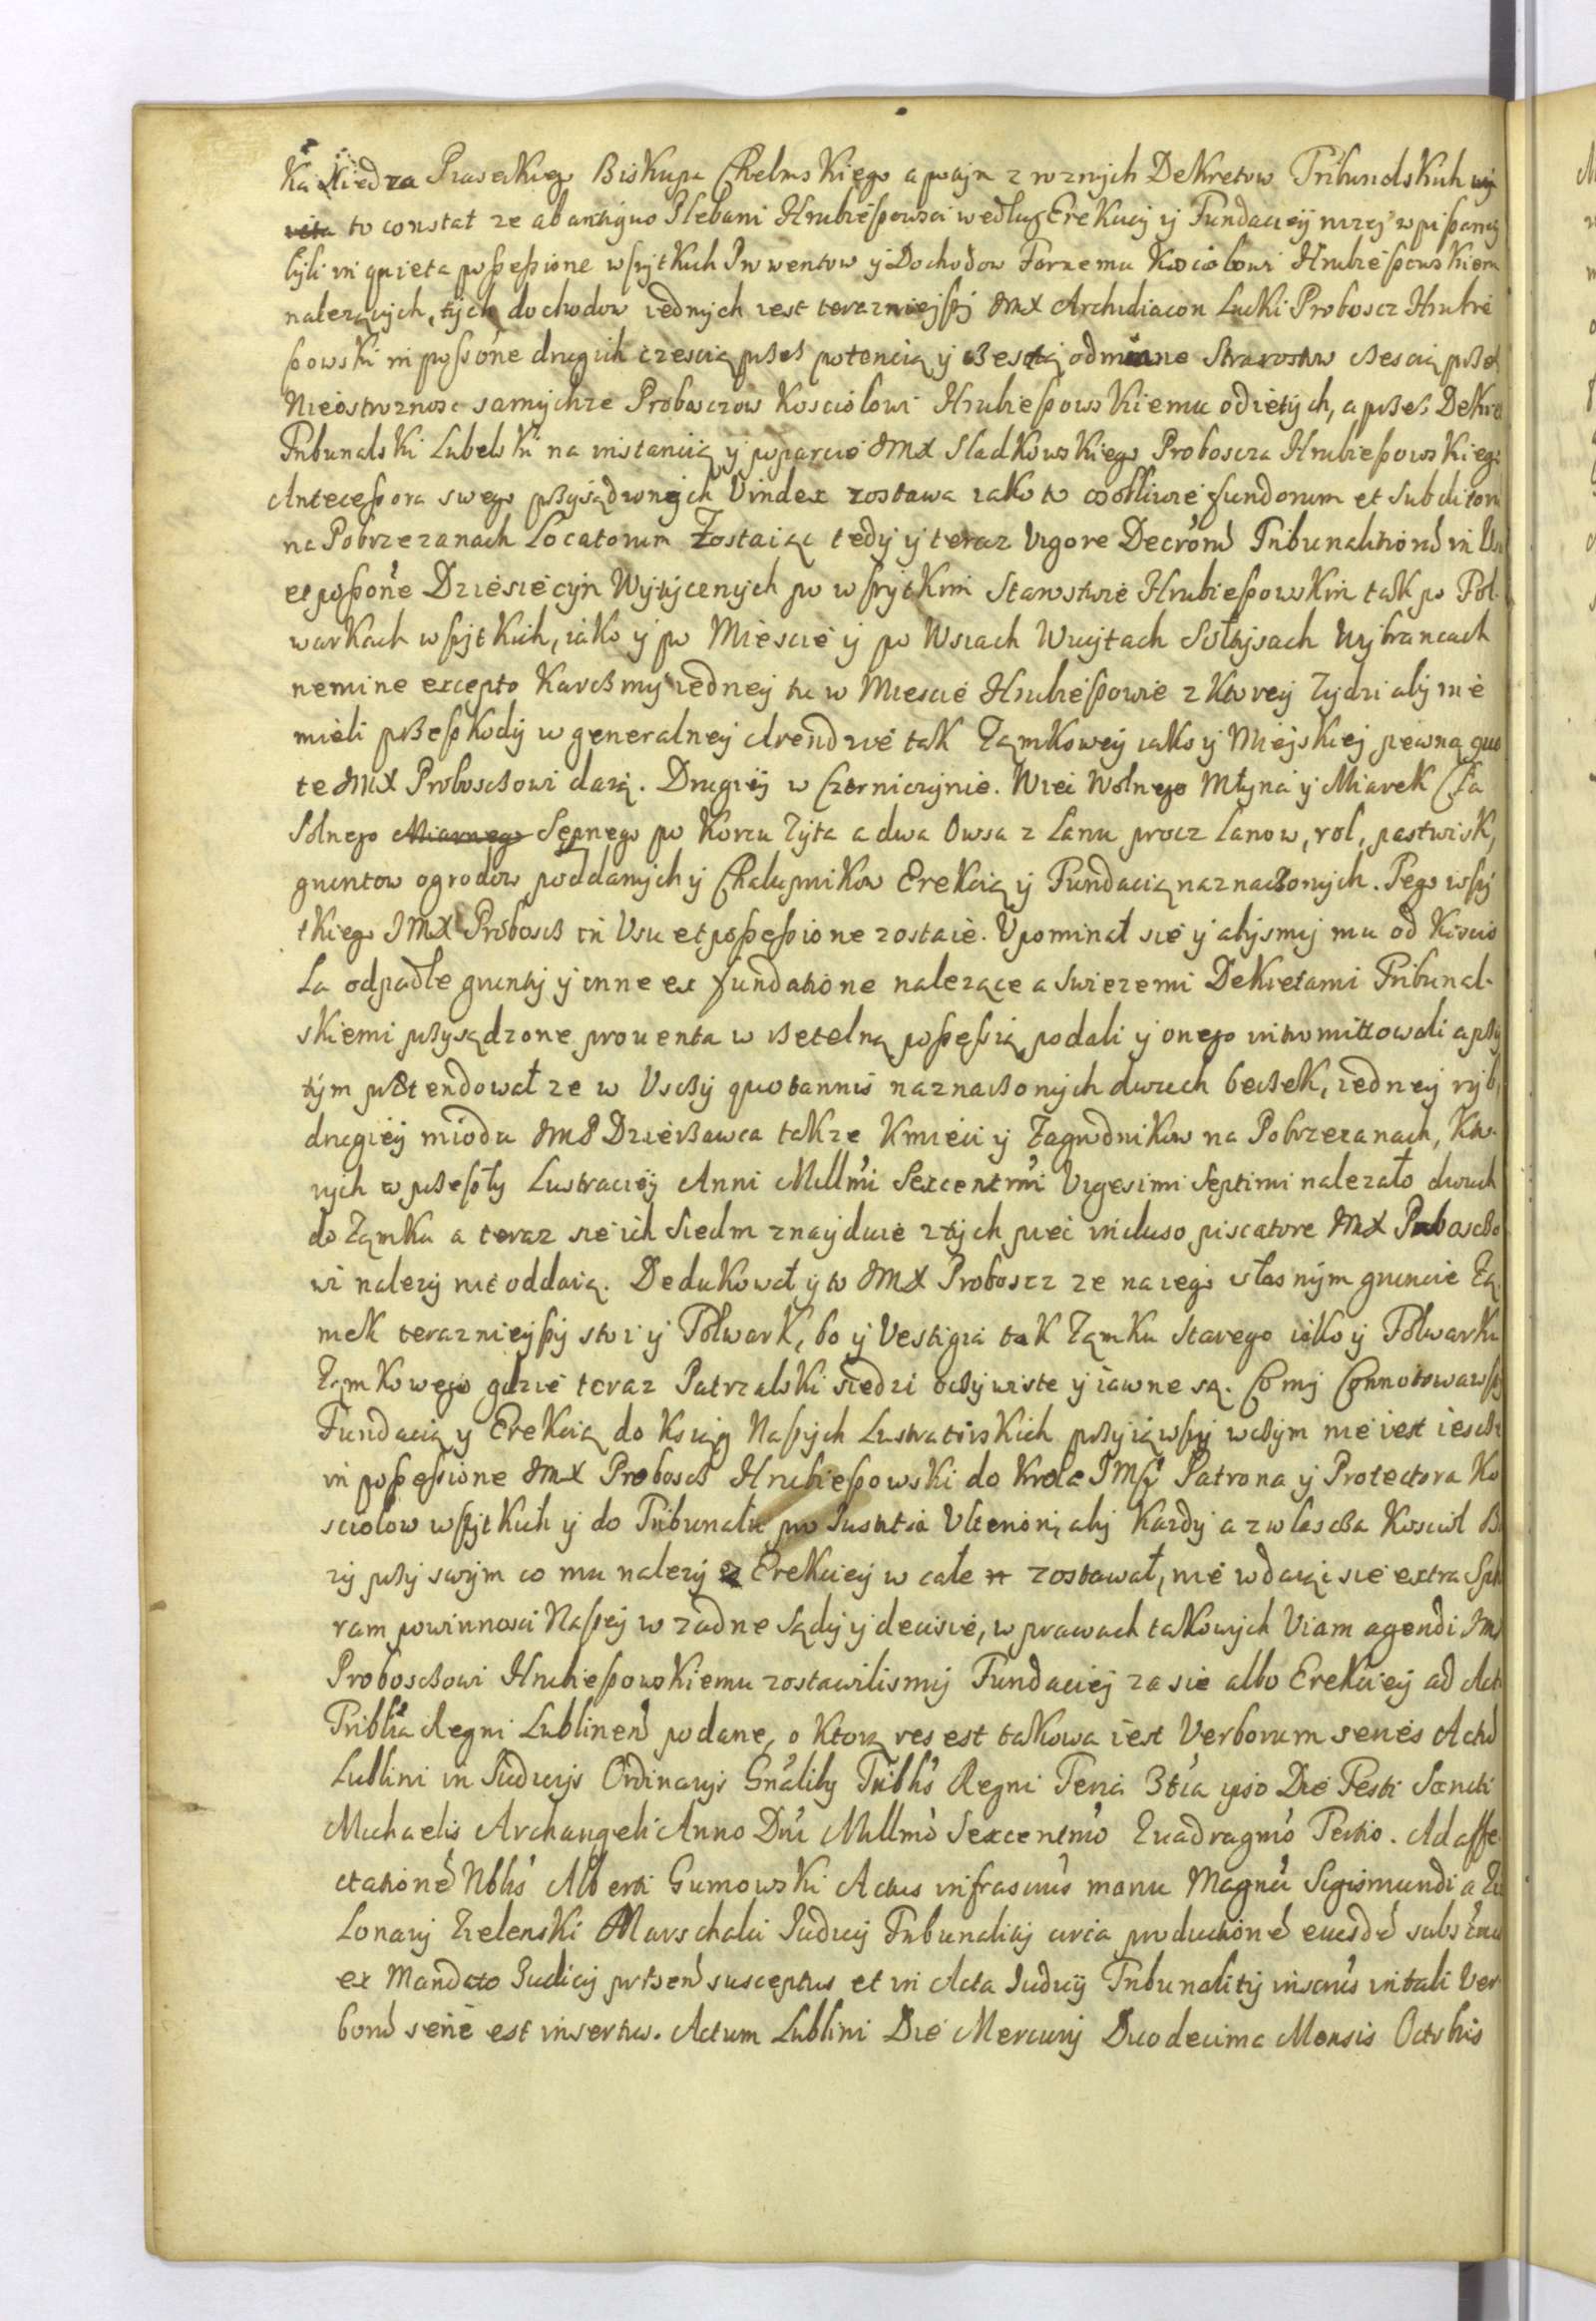 Ka Xiedza Piaseckiego Biskupa Chelmskiego a potym z roznych Dekretow Tribunalskich
to constat ze ab antiquo Plebani Hrubießowscy według Erekciey y Fundaciey nizey wpisaney
byli in quieta poßeßione wszytkich Prowentow y Dochodow Farnemu Kosciołowi Hrubießowskiem
nalezących, tych dochodow iednych iest teraznieyszy JMX Archidiacon Lucki Proboscz Hrubie
ßowski in poßone drugich czescią przez potencią y czestą odmiane Starostow czescią przez
Nieostroznosc samychze Proboszczow Kosciołowi Hrubießowskiemu odiętych, a przez Dekret
Tribunalski Lubelski na instancią y poparcie JMX Sladkowskiego Proboscza Hrubießowskiego
Anteceßora swego przysądzonych Vindex zostawa iako to osobliwie fundorum et Subditorum
na Pobrzezanach Locatorum Zostaiąc tedy y teraz Vigore Decrorum Tribunalitiorum in Usu
et poßone Dziesięcyn Wytycznych po wszytkim Starostwie Hrubießowskim tak po Fol
warkach wszytkich, iako y po Miescie y po Wsiach Wuytach Sołtysach Wybrancach
nemine excepto Karczmy iedney tu w Miescie Hrubießowie z ktorey Zydzi aby nie
mieli przeszkody w generalney Arendzie tak Zamkowey iako y Mieyskiey pewną quo
te JMX Probosczowi daią. Drugiey w Czerniczynie. Item Wolnego Młyna y Miarek Cła
Solnego Miarnego Sępnego po Korcu Zyta a dwa Owsa z Łanu procz Lanow, rol, pastwisk,
gruntow ogrodow poddanych y Chałupnikow Erekcią y Fundacią naznaczonych. Tego wszy
tkiego JMX Proboscz in Usu et poßeßione zostaie. Upominał sie y abysmy mu od Koscio
ła odpadłe grunty y inne ex fundatione nalezące a swiezemi Dekretami Tribunal
skiemi przysądzone prouenta w rzetelną poßeßią podali y onego intromittowali a przy
tym prtendował ze w Usczy quotannis naznaczonych dwuch beczek, iedney ryb,
drugiey miodu JMP Dzierzawca takze Kmieci y Zagrodnikow na Pobrzezanach, Kto
rych w przeszły Lustraciey Anni Millmi Sexcentmi Vigesimi Septimi nalezało dwuch
do Zamku a teraz sie ich Siedm znayduie z tych pięć incluso piscatore JMX Probosczo
wi nalezy nie oddaią. Dedukował y to JMX Proboscz ze na iego własnym gruncie Za
mek teraznieyszy stoi y Folwark, bo y Vestigia tak Zamku Starego iako y Folwarku
Zamkowego gdzie teraz Patrzalski siedzi oczywiste y iawne są. Co my Connotowawszy
Fundacią y Erekcią do Ksiąg Naszych Lustratorskich przyiąwszy w czym nie iest iescze
in poßeßione JMX Proboscz Hrubießowski do Krola JMsci Patrona y Protectora Ko
sciołow wszytkich y do Tribunału pro Iustitia Ulteriori, aby Kazdy a zwlascza Kosciół B
zy przy swym co mu nalezy z Erekciey w cale zostawał, nie wdaiąc sie extra Sphæ
ram powinnosci Naszey w zadne Sądy y decisie, w prawach takowych Viam agendi JMX
Probosczowi Hrubießowskiemu zostawilismy Fundaciey zasie albo Erekciey ad Act
Triblia Regni Lublinen podane, o ktorą res est takowa iest Verborum series Actum
Lublini in Iudicijs Ordinarijs Gnalibus Triblis Regni Feria 3tia ipso Die Festi Sancti
Michaelis Archangeli Anno Dni Millmo Sexcentmo Quadragmo Tertio. Ad affe
ctationem Nblis Alberti Gumowski Actus infrascrius manu Magnci Sigismundi a Zu
Lonary Zielenski Marschalci Iudicij Tribunalicij circa productionem eiusdem subscru
ex Mandato Iudicij prtsen susceptus et in Acta Iudicij Tribunalitij inscrius in tali Ver
borum serie est insertus. Actum Lublini Die Mercurij Duodecima Mensis Octobris